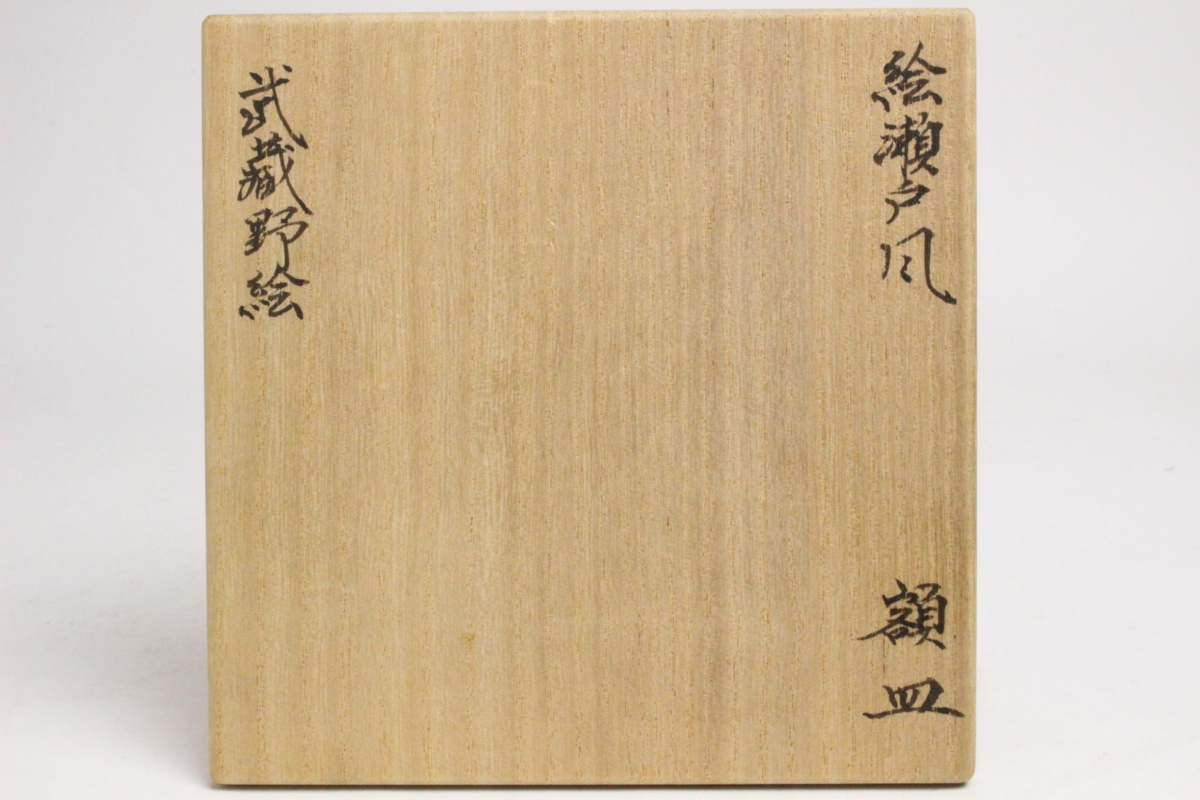 絵瀬戸風
額皿
武蔵野絵